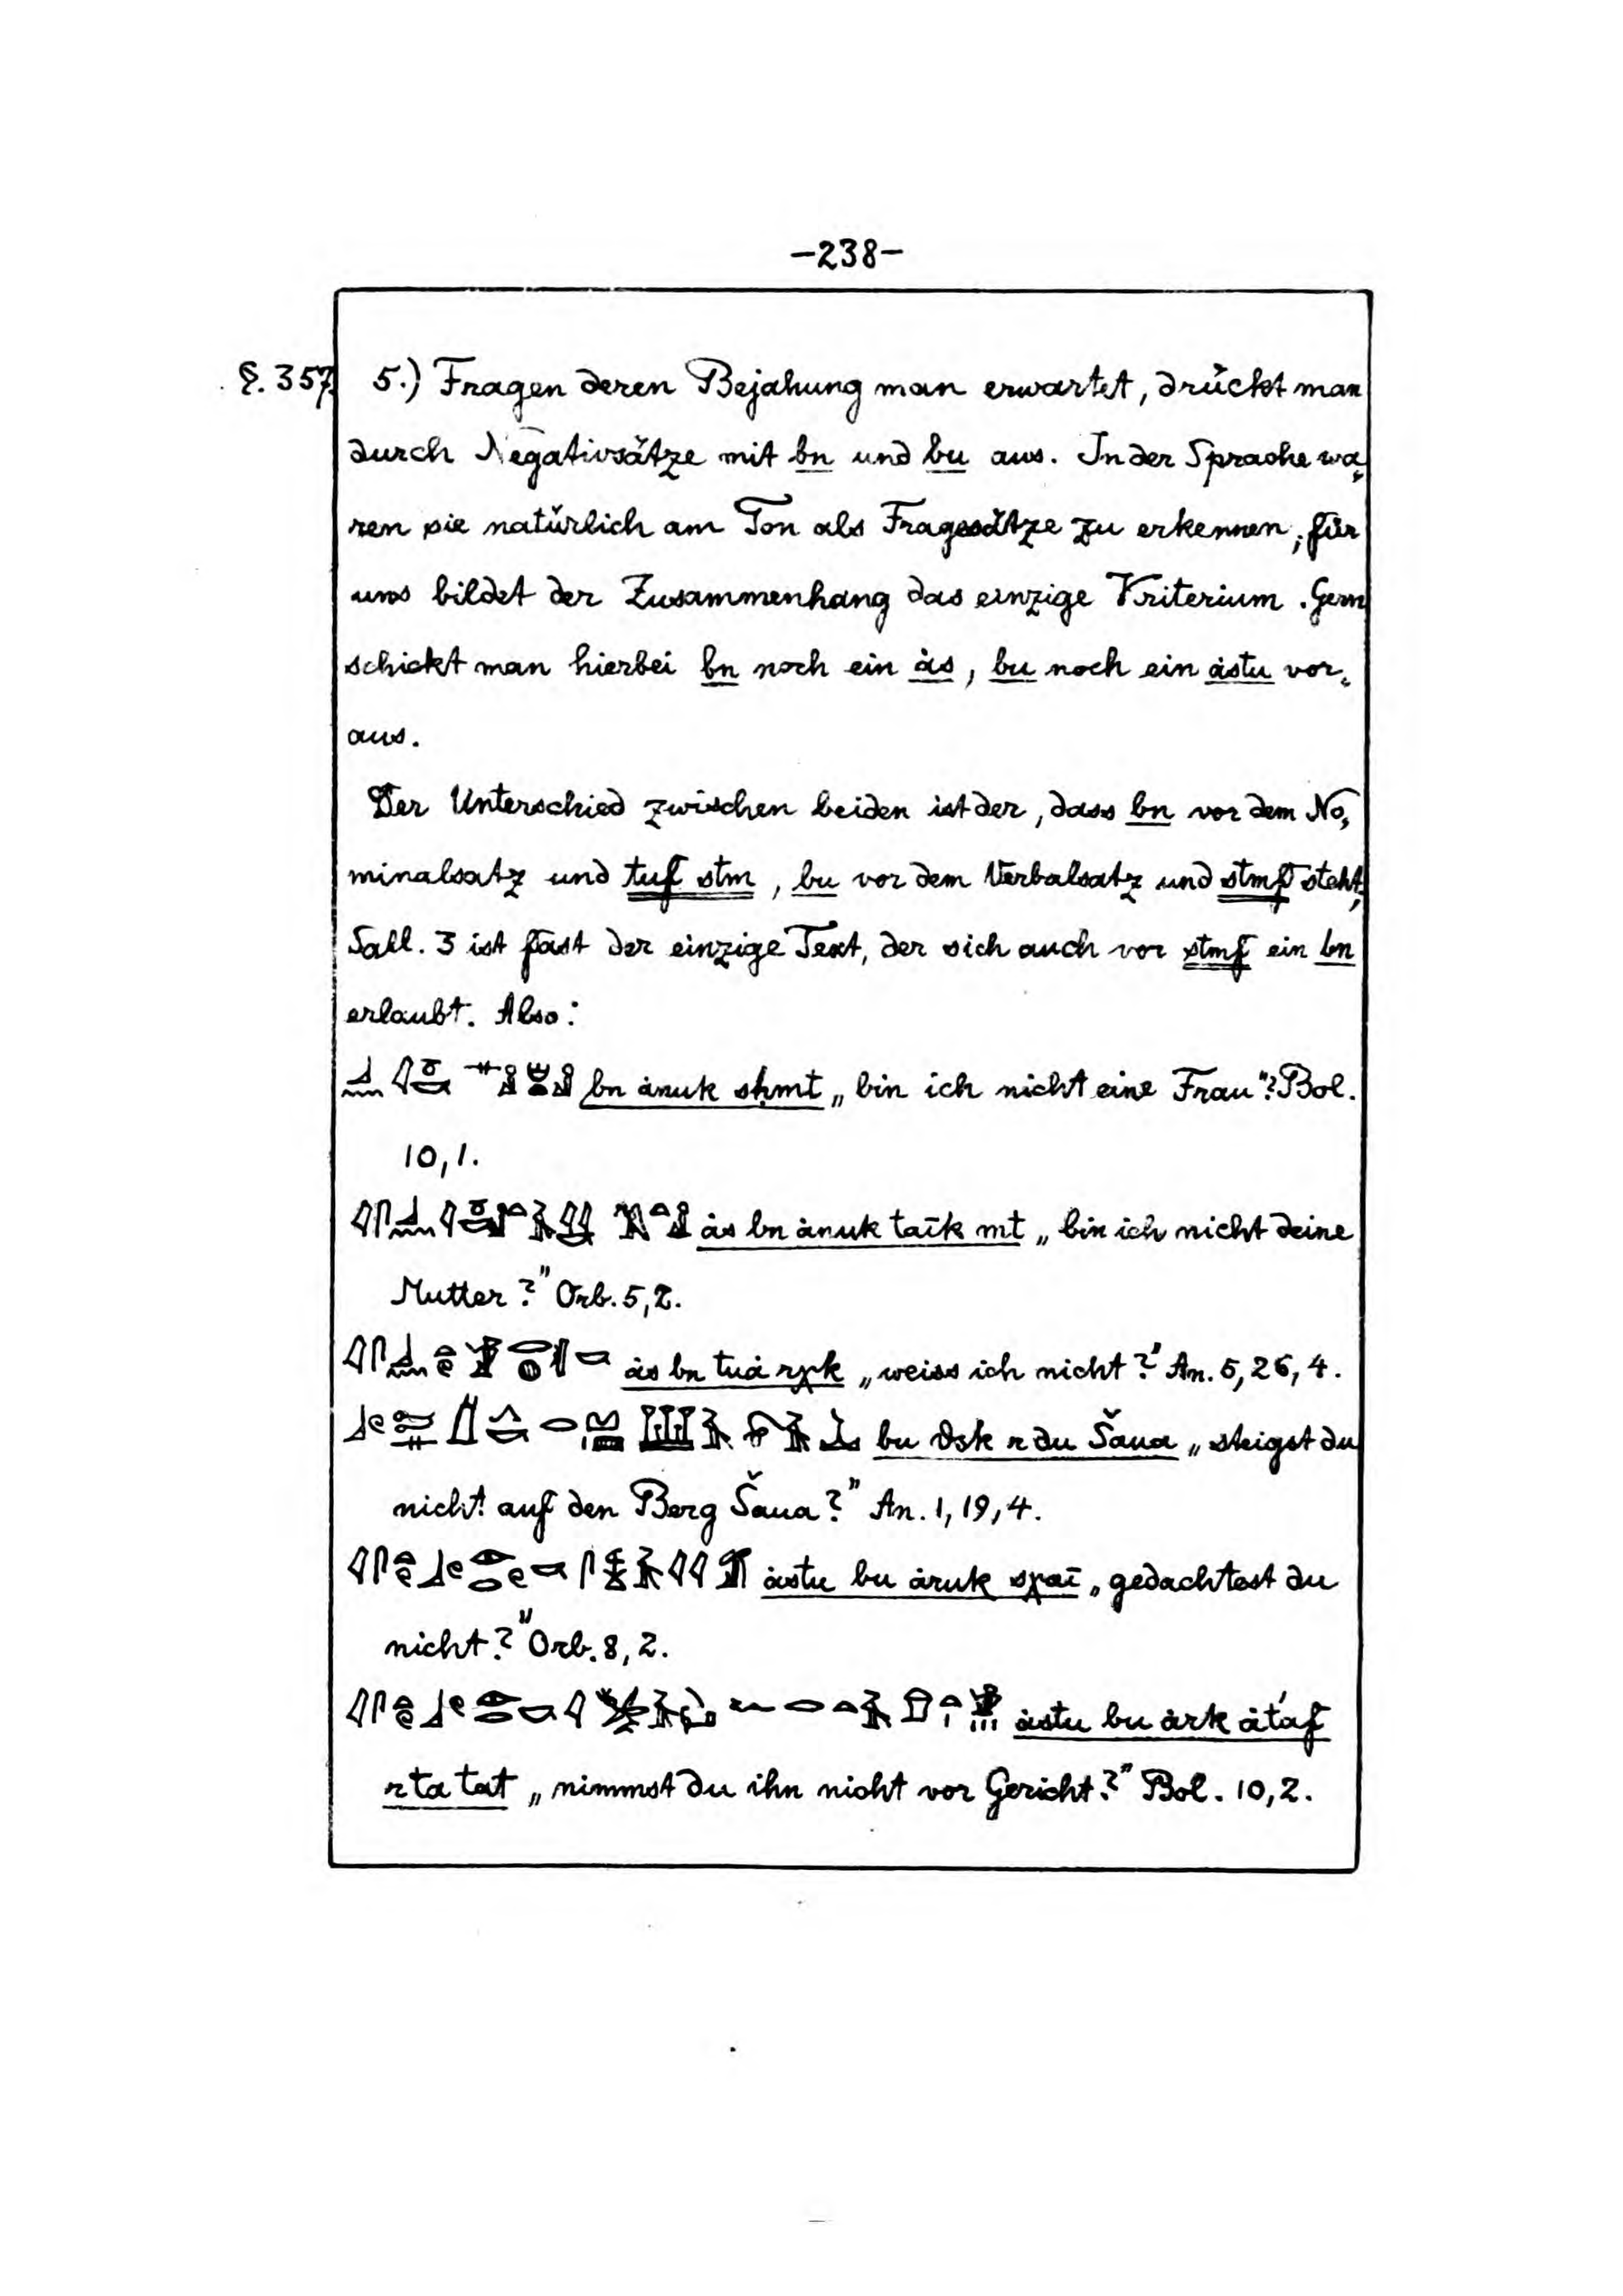 -238-
§. 357. 5.) Fragen deren Bejahung man erwartet, drückt man
durch Negativsätze mit bn und bu aus. In der Sprache wa=
ren sie natürlich am Ton als Fragesätze zu erkennen, für
uns bildet der Zusammenhang das einzige Kriterium. Gern
schickt man hierbei bn noch ein ȧs, bu noch ein ȧstu vor=
aus.
Der Unterschied zwischen beiden ist der, dass bn vor dem No=
minalsatz und tuf stm, bu vor dem Verbalsatz und stmf steht,
Sall. 3 ist fast der einzige Text, der sich auch vor stmf ein bn
erlaubt. Also:
bn ȧnuk sḥmt „bin ich nicht eine Frau"? Bol.
10,1.
ȧs bn ȧnuk taîk mt „bin ich nicht deine
Mutter?" Orb. 5,2.
ȧs bn tuȧ rχk „weiss ich nicht?" An. 5,26,4.
bu ϑsk r du Šaua „steigst du
nicht auf den Berg Šaua?" An. 1,19,4.
ȧstu bu ȧruk sχaî „gedachtest du
nicht?" Orb. 8,2.
ȧstu bu ȧrk
r ta tat „nimmst du ihn nicht vor Gericht?" Bol. 10,2.